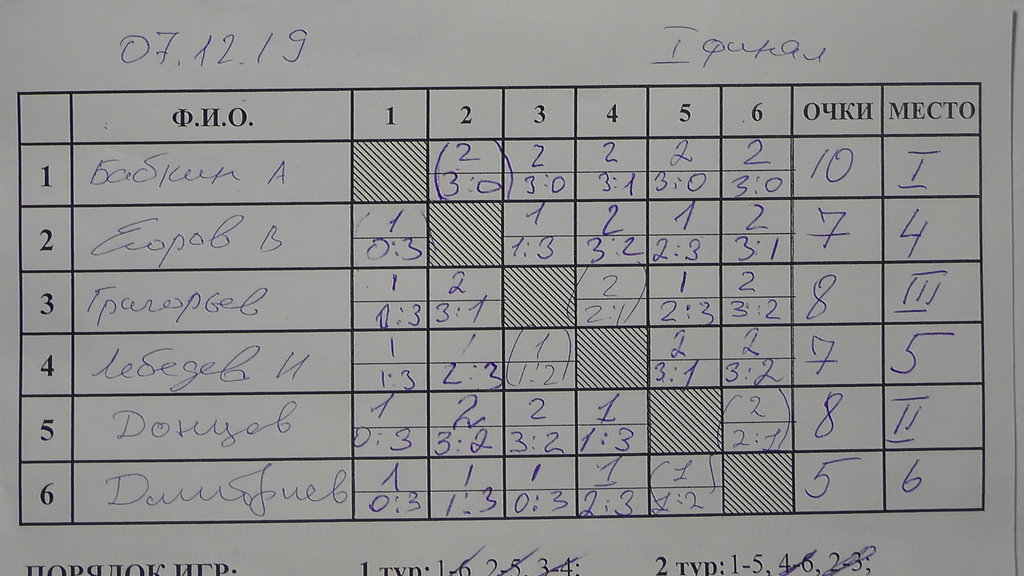 07.12.19 I финал
Ф.И.О. 1 2 3 4 5 6 ОЧКИ МЕСТО
1 Бабкин А (2 2 2 2 2 10 I
3:0) 3:0 3:1 3:0 3:0
2 Егоров В (1) 1 2 1 2 7 4
0:3 1:3 3:2 2:3 3:1
3 Григорьев 1 2 (2) 1 2 8 III
3:1 2:1 2:3 3:2
4 Лебедев И 1 1 (1) 2 2 7 5
1:3 2:3 1:2 3:1 3:2
5 Донцов 1 2 2 1 (2) 8 II
0:3 3:2 3:2 1:3 2:1
6 Дмитриев 1 1 1 1 (1) 5 6
0:3 1:3 0:3 2:3 1:2
ПОРЯДОК ИГР: 1 тур: 1-6, 2-5, 3-4; 2 тур: 1-5, 4-6, 2-3;